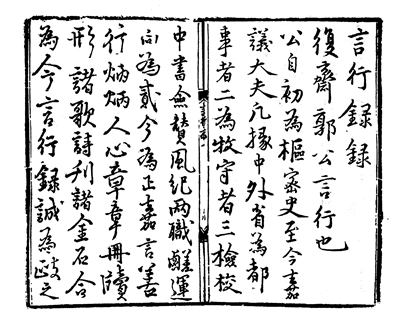 言行録録
復齋郭公言行也
公自初為樞密史至今嘉
議大夫凡掾中外省為都
事者二為牧守者三檢校
中書僉賛風紀兩職鹺運
向為貳今為正嘉言善
行炳炳人心章章冊牘
形諸歌詩刋諸金石合
為今言行録誠為